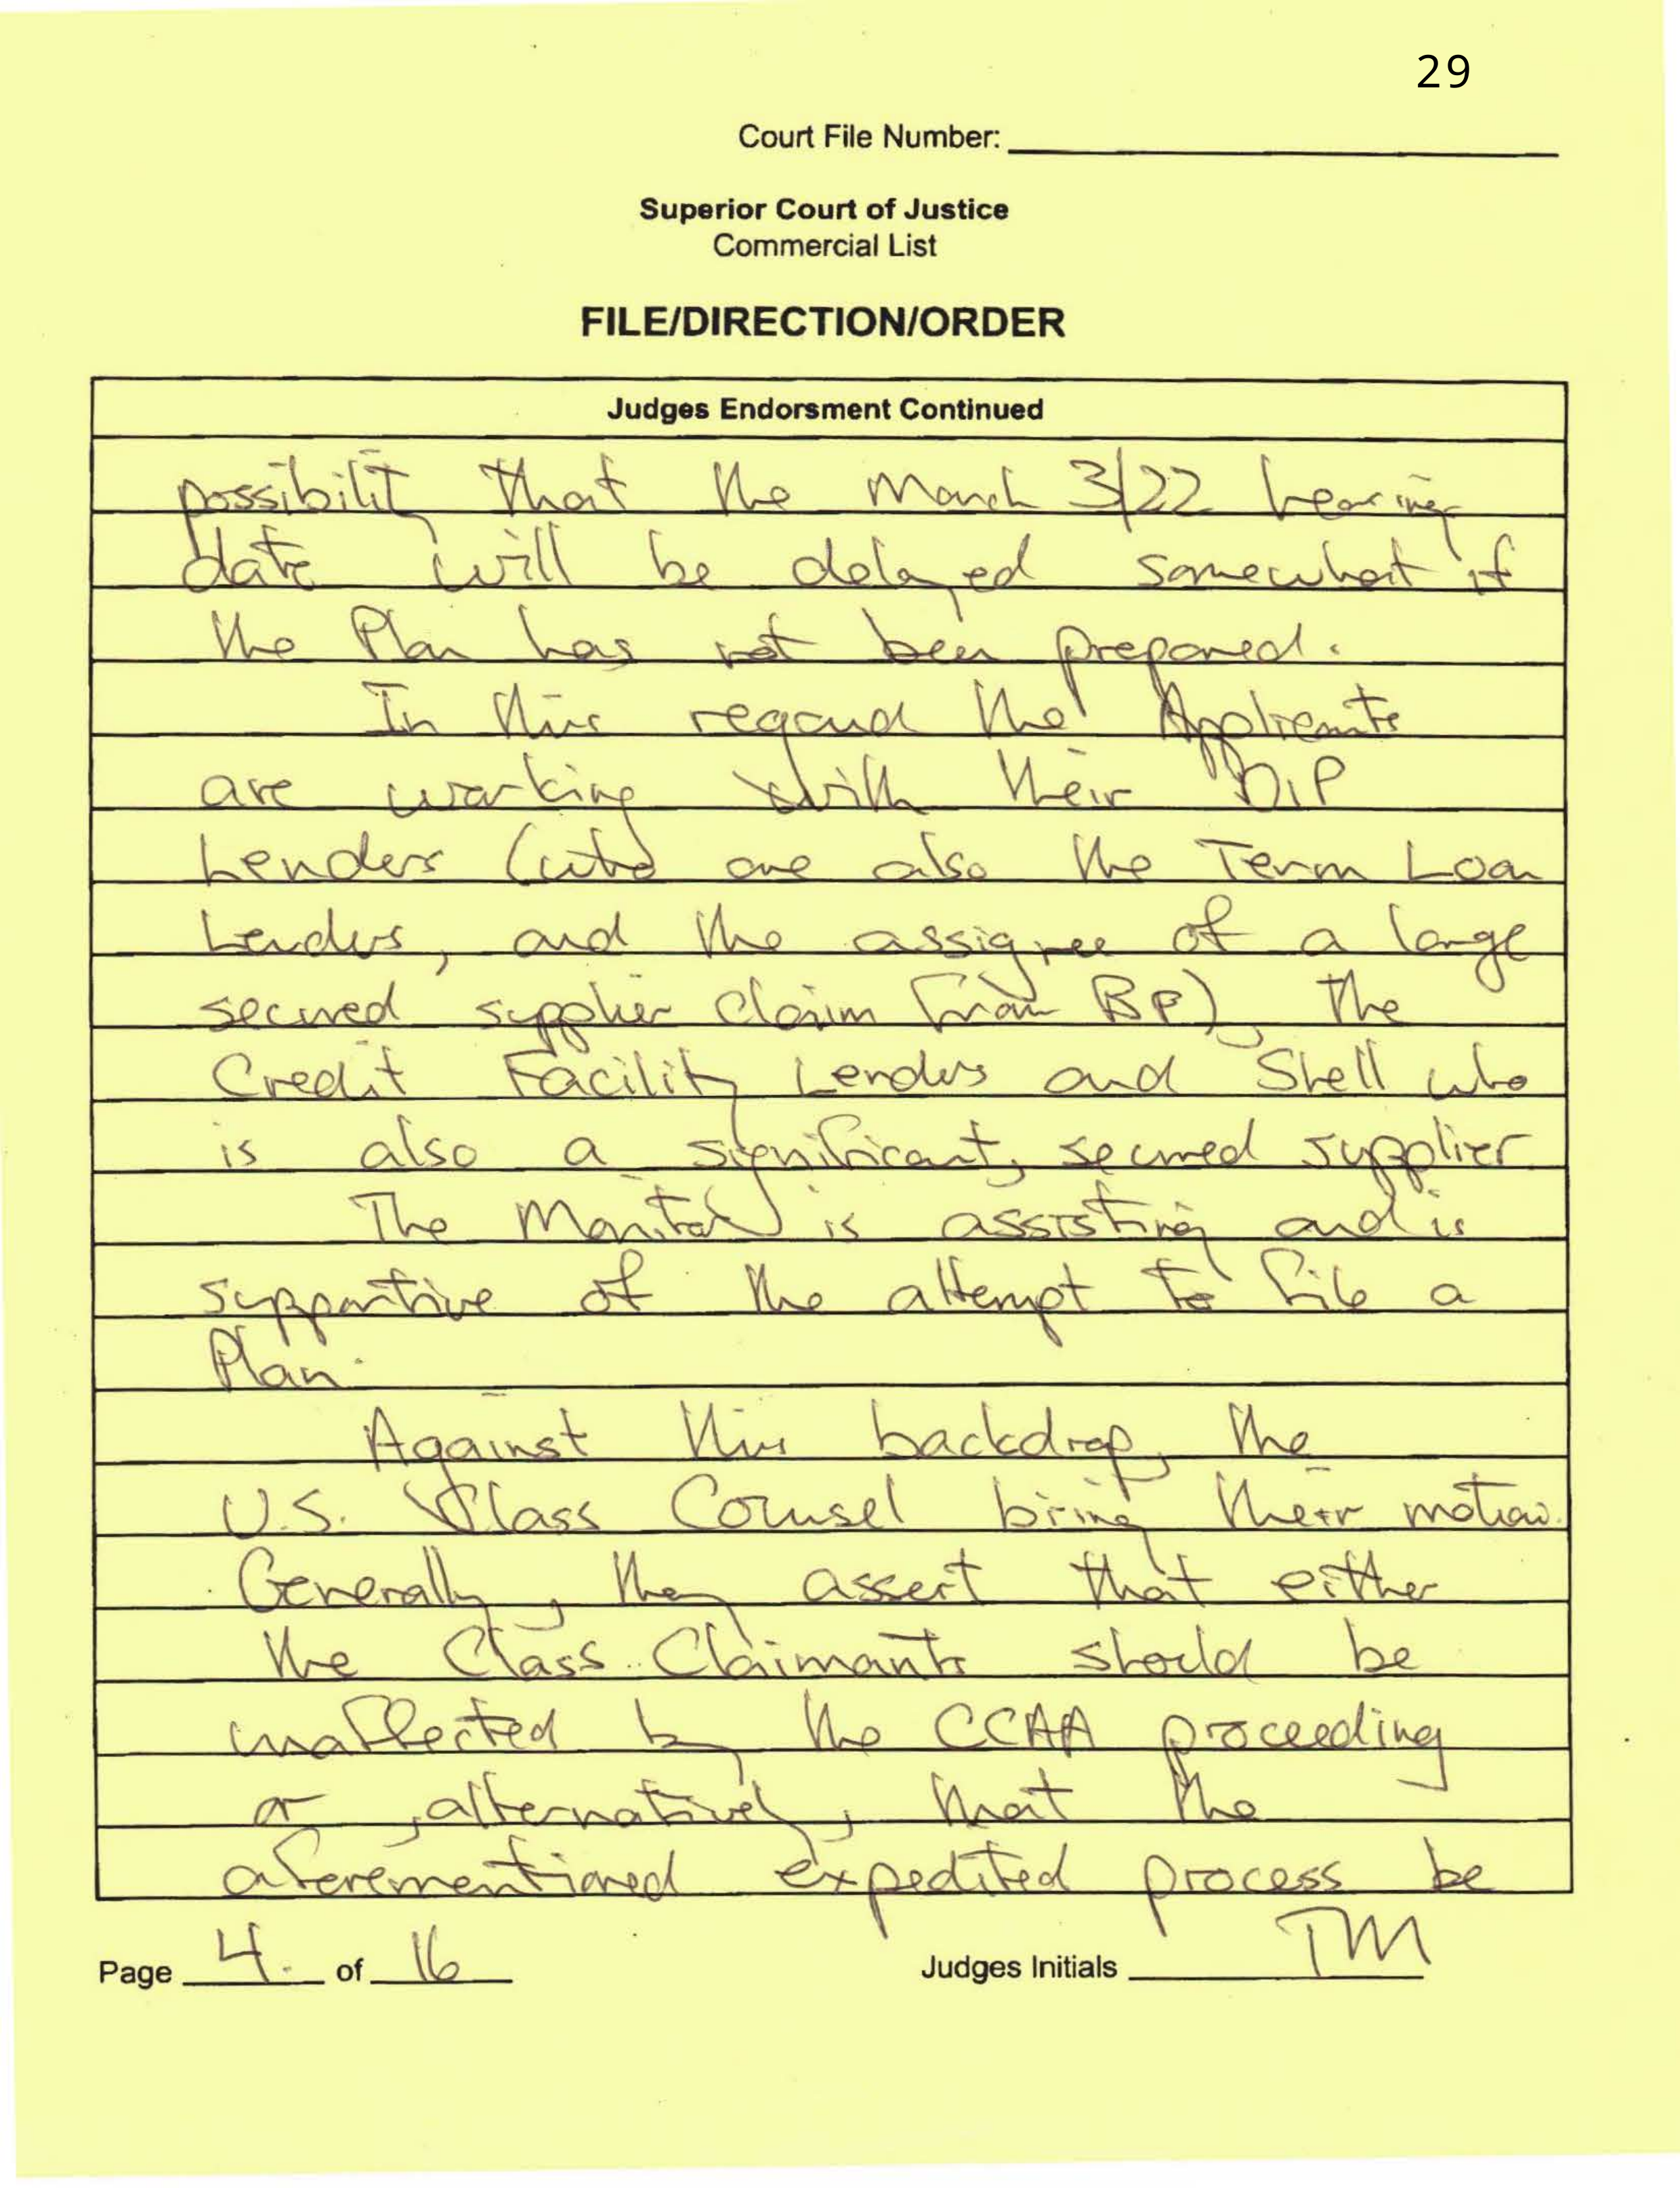 29
Court File Number:
Superior Court of Justice
Commercial List
FILE/DIRECTION/ORDER
Judges Endorsment Continued
possibility that the March 3/22 hearing
date will be delayed somewhat if
the Plan has not been prepared.
In this regard the Applicants
are working with their DIP
Lenders (who are also the Term Loan
Lenders, and the assignee of a large
secured supplier claim from BP), the
Credit Facility Lenders and Shell who
is also a significant, secured supplier
The Monitor is assisting and is
supportive of the attempt to file a
Plan.
Against this backdrop, the
U.S. Class Counsel bring their motion.
Generally, they assert that either
the Class Claimants should be
unaffected by the CCAA proceeding
or, alternatively, that the
aforementioned expedited process be
Page 4. of 16 Judges Initials TM